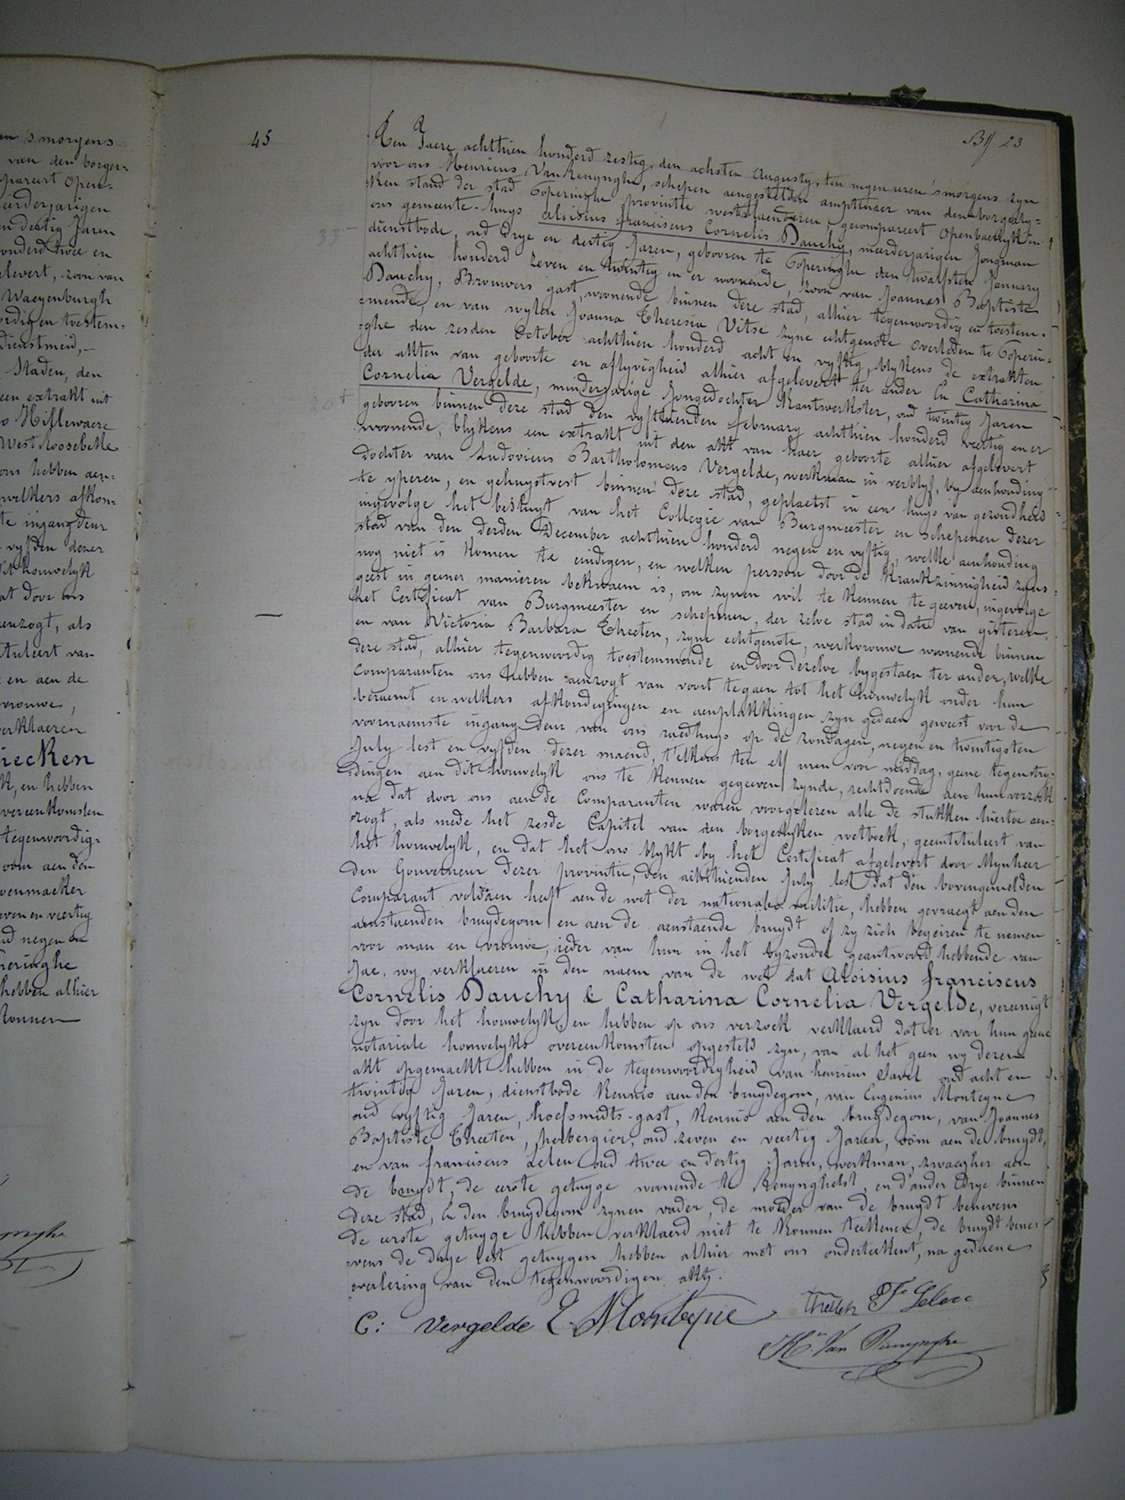 45
Bl 23
Ten Jaere achthien honderd zestig, den achsten Augusty, ten negen uren 'smorgens zyn
voor ons Henricus Van Renynghe, schepen aengestelden amptenaer van den borgerly-
ken stand der stad Poperinghe provintie westvlaenderen, gecompareert openbaerlyk in
ons gemeente-huys Aloisius franciscus Cornelis Dauchy, meerderjarigen Jongman
dienstbode, oud drye en dertig Jaren, gebooren te Poperinghe den twalfsten January
achthien honderd zeven en twintig en er woonende, zoon van Joannes Baptiste
Dauchy, Brouwers gast, woonende binnen deze stad, alhier tegenwoordig en toestem-
mende, en van wylen Joanna Theresia Vitse zyne echtgenote overleden te Poperin-
ghe den zesden October achthien honderd acht en vyftig, blykens de extrakten
der akten van geboorte en aflyvigheid alhier afgelevert ter ander En Catharina
Cornelia Vergelde, minderjarige Jongedochter kantwerkster, oud twintig Jaren
gebooren binnen deze stad den vyfthienden february achthien honderd veertig en er
woonende, blykens een extrakt uit den akt van haer geboorte alhier afgelevert
dochter van Ludovicus Bartholomeus Vergelde, werkman in verblyf, by aenhouding
te yperen, en gehuystvest binnen deze stad, geplaetst in een huys van gezondheid
ingevolge het besluyt van het Collegie van Burgmeester en schepenen dezer
stad van den derden December achthien honderd negen en vyftig, welke aenhouding
nog niet is komen te eindigen, en welken persoon door de krankzinnigheid zyns
geest in geener manieren bekwaem is, om zynen wil te kennen te geeven, ingevolge
het Certificat van Burgmeester en schepenen, der zelve stad in datie van gisteren,
en van Victoria Barbara Theeten, zyne echtgenote, werkvrouwe woonende binnen
deze stad, alhier tegenwoordig toestemmende en door dezelve bygestaen ter ander, welke
Comparanten ons hebben aenzogt van voort te gaen tot het houwelyk onder hun
beraemt en welkers afkondigingen en aenplakkingen zyn gedaen geweest voor de
voornaemste ingang deur van ons raedhuys op de zondagen, negen en twintigsten
July lest en vyfden dezer maend, telkens ten elf uren voor middag, geene tegenstry-
dingen aen dit houwelyk ons te kennen gegeeven zynde, rechtdoende aen hun verzoek
na dat door ons aen de Comparanten waren voorgelezen alle de stukken hiertoe aen-
zogt, als mede het zesde Capitel van den borgerlyken wetboek, geintituleert van
het houwelyk, en dat het ons blykt by het Certificat afgelevert door Mynheer
den Gouverneur dezer provintie, den achthienden July lest dat den bovengemelden
Comparant voldaen heeft aen de wet der nationale militie, hebben gevraegt aen den
aenstaenden bruydegom en aen de aenstaende bruydt of zy zich begeiren te nemen
voor man en vrouwe, ieder van hun in het byzonder geantwoord hebbende van
Jae, wy verklaeren in den naem van de wet dat Aloisius franciscus
Cornelis Dauchy & Catharina Cornelia Vergelde, vereenigt
zyn door het houwelyk, en hebben op ons verzoek verklaerd dat er voor hun geene
notariale houwelyks overeenkomsten opgesteld zyn, van al het geen wy dezen
akt opgemaekt hebben in de tegenwoordigheid van henricus Savel oud acht en
twintig Jaren, dienstbode kennis aen den bruydegom, van Eugenius Monteyne
oud vyftig Jaren, hoefsmidts-gast, kennis aen den bruydegom, van Joannes
Baptiste Theeten, herbergier, oud zeven en veertig Jaren, oom aen de bruydt,
en van franciscus Lelen oud twee en dertig Jaren, werkman, zwaegher aen
de bruydt, de eerste getuyge woonende te Renynghelst, en d'ander drye binnen
deze stad, En den bruydegom zynen vader, de moeder van de bruydt benevens
de eerste getuyge hebben verklaerd niet te konnen teekenen, de bruydt bene-
vens de drye lest getuygen hebben alhier met ons onderteekent, na gedaene
voorlezing van den tegenwoordigen akt.
C: Vergelde E. Monteyne Theeten F. Lelen
Hri Van Renynghe
en 'smorgens
van den borger-
pareert open-
eerderjarigen
en dertig Jaren
onderd twee en
elevert, zoon van
Waeyenburgh
ordig en toestem-
Dienstmeid,
Staden, den
een extrakt uit
o Hillewaere
West roosebeke
ons hebben aen-
welkers afkon-
te ingang deur
vyfden dezer
dit houwelyk
at door ons
aenzogt, als
ituleert van
en aen de
vrouwe,
verklaeren
riecken
k, en hebben
overeenkomsten
tegenwoordig-
oom aen den
venmaeker
even en veertig
rd negen en
heringhe
hebben alhier
konnen